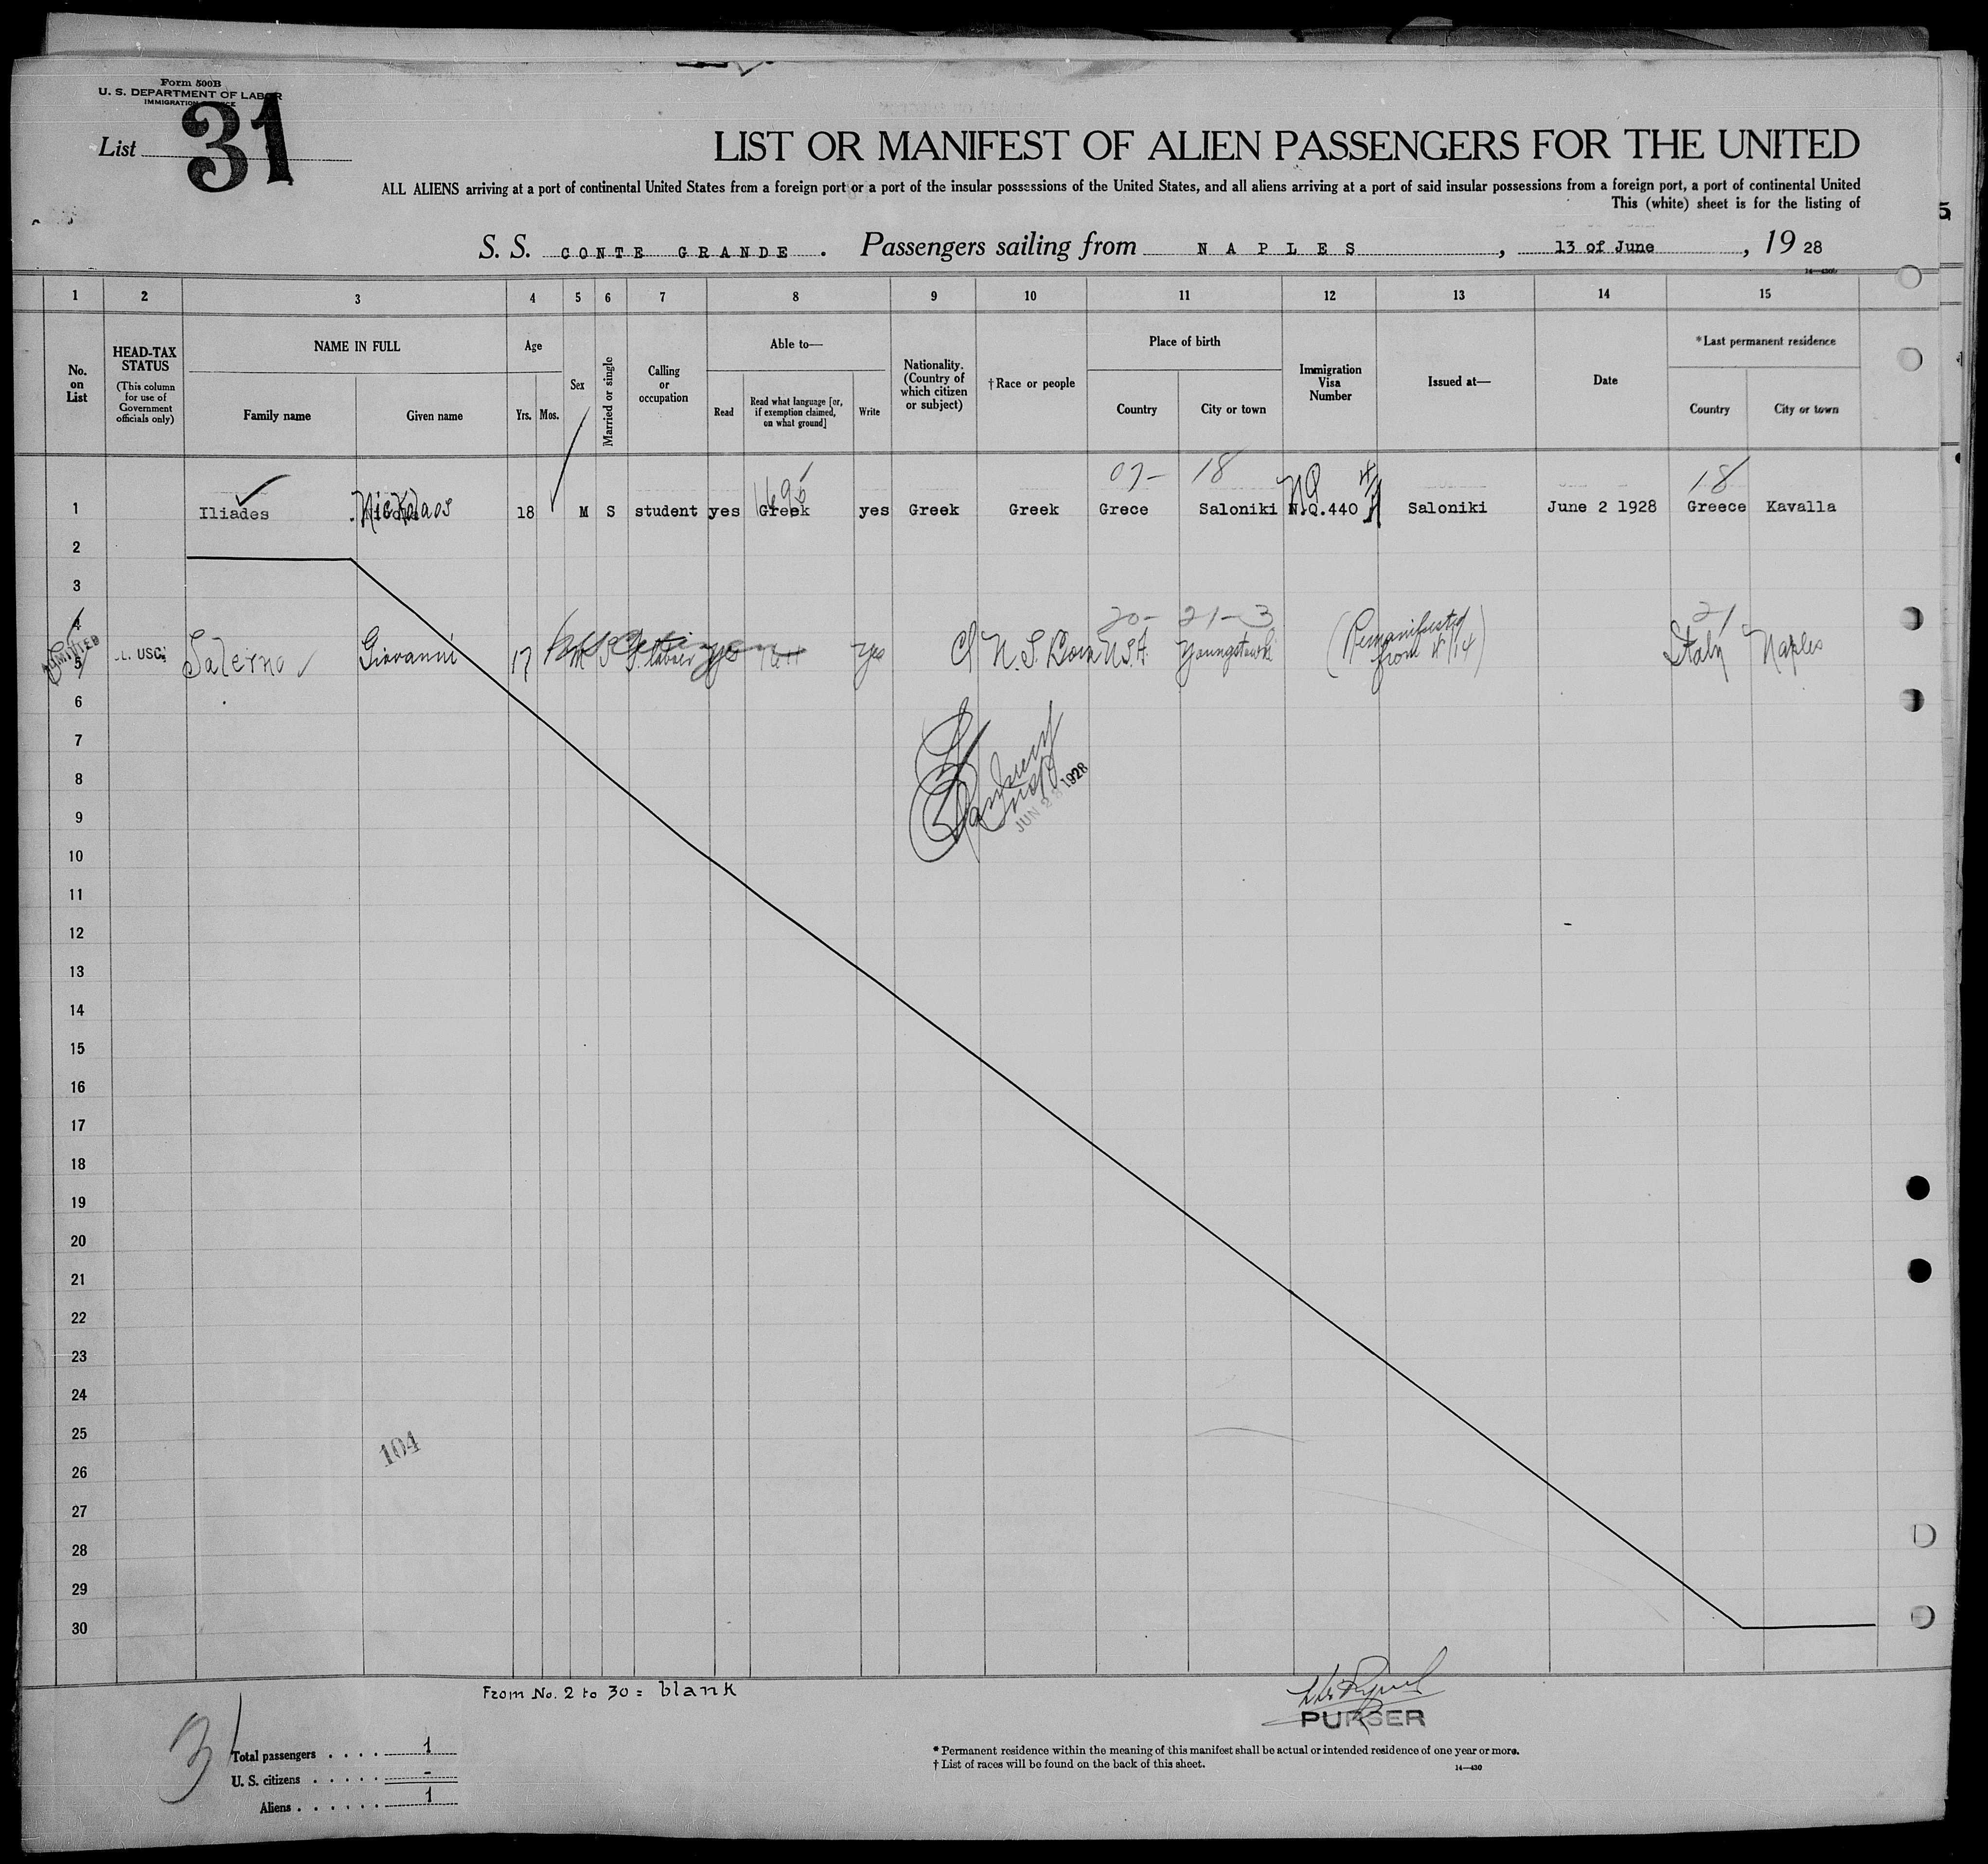 Form 500B
U. S. DEPARTMENT OF LABOR
IMMIGRATION
List 31
LIST OR MANIFEST OF ALIEN PASSENGERS FOR THE UNITED
ALL ALIENS arriving at a port of continental United States from a foreign port or a port of the insular possessions of the United States, and all aliens arriving at a port of said insular possessions from a foreign port, a port of continental United
This (white) sheet is for the listing of
5
S. S. CONTE GRANDE. Passengers sailing from NAPLES, 13 of June, 19 28
1 2 3 4 5 6 7 8 9 10 11 12 13 14 15
No. on List
HEAD-TAX STATUS (This column for use of Government officials only)
NAME IN FULL
Family name Given name
Age
Yrs. Mos.
Sex
Married or single
Calling or occupation
Able to—
Read
Read what language [or, if exemption claimed, on what ground]
Write
Nationality. (Country of which citizen or subject)
†Race or people
Place of birth
Country City or town
Immigration Visa Number
Issued at—
Date
*Last permanent residence
Country City or town
07- 18 18
1 Iliades Nickolaos 18 M S student yes Greek yes Greek Greek Grece Saloniki N.Q.440 Saloniki June 2 1928 Greece Kavalla
2
3
4 20- 21-3 21
ADMITTED
5 USC Salerno Giovanni 17 M S yes yes U.S.A. (Remanifested from 4/14) Italy Naples
6
7
8
JUN 23 1928
9
10
11
12
13
14
15
16
17
18
19
20
21
22
23
24
25
104
26
27
28
29
30
From No. 2 to 30 = blank
PURSER
31
Total passengers . . . . 1
U. S. citizens . . . . . -
Aliens . . . . . . 1
* Permanent residence within the meaning of this manifest shall be actual or intended residence of one year or more.
† List of races will be found on the back of this sheet.
14—430